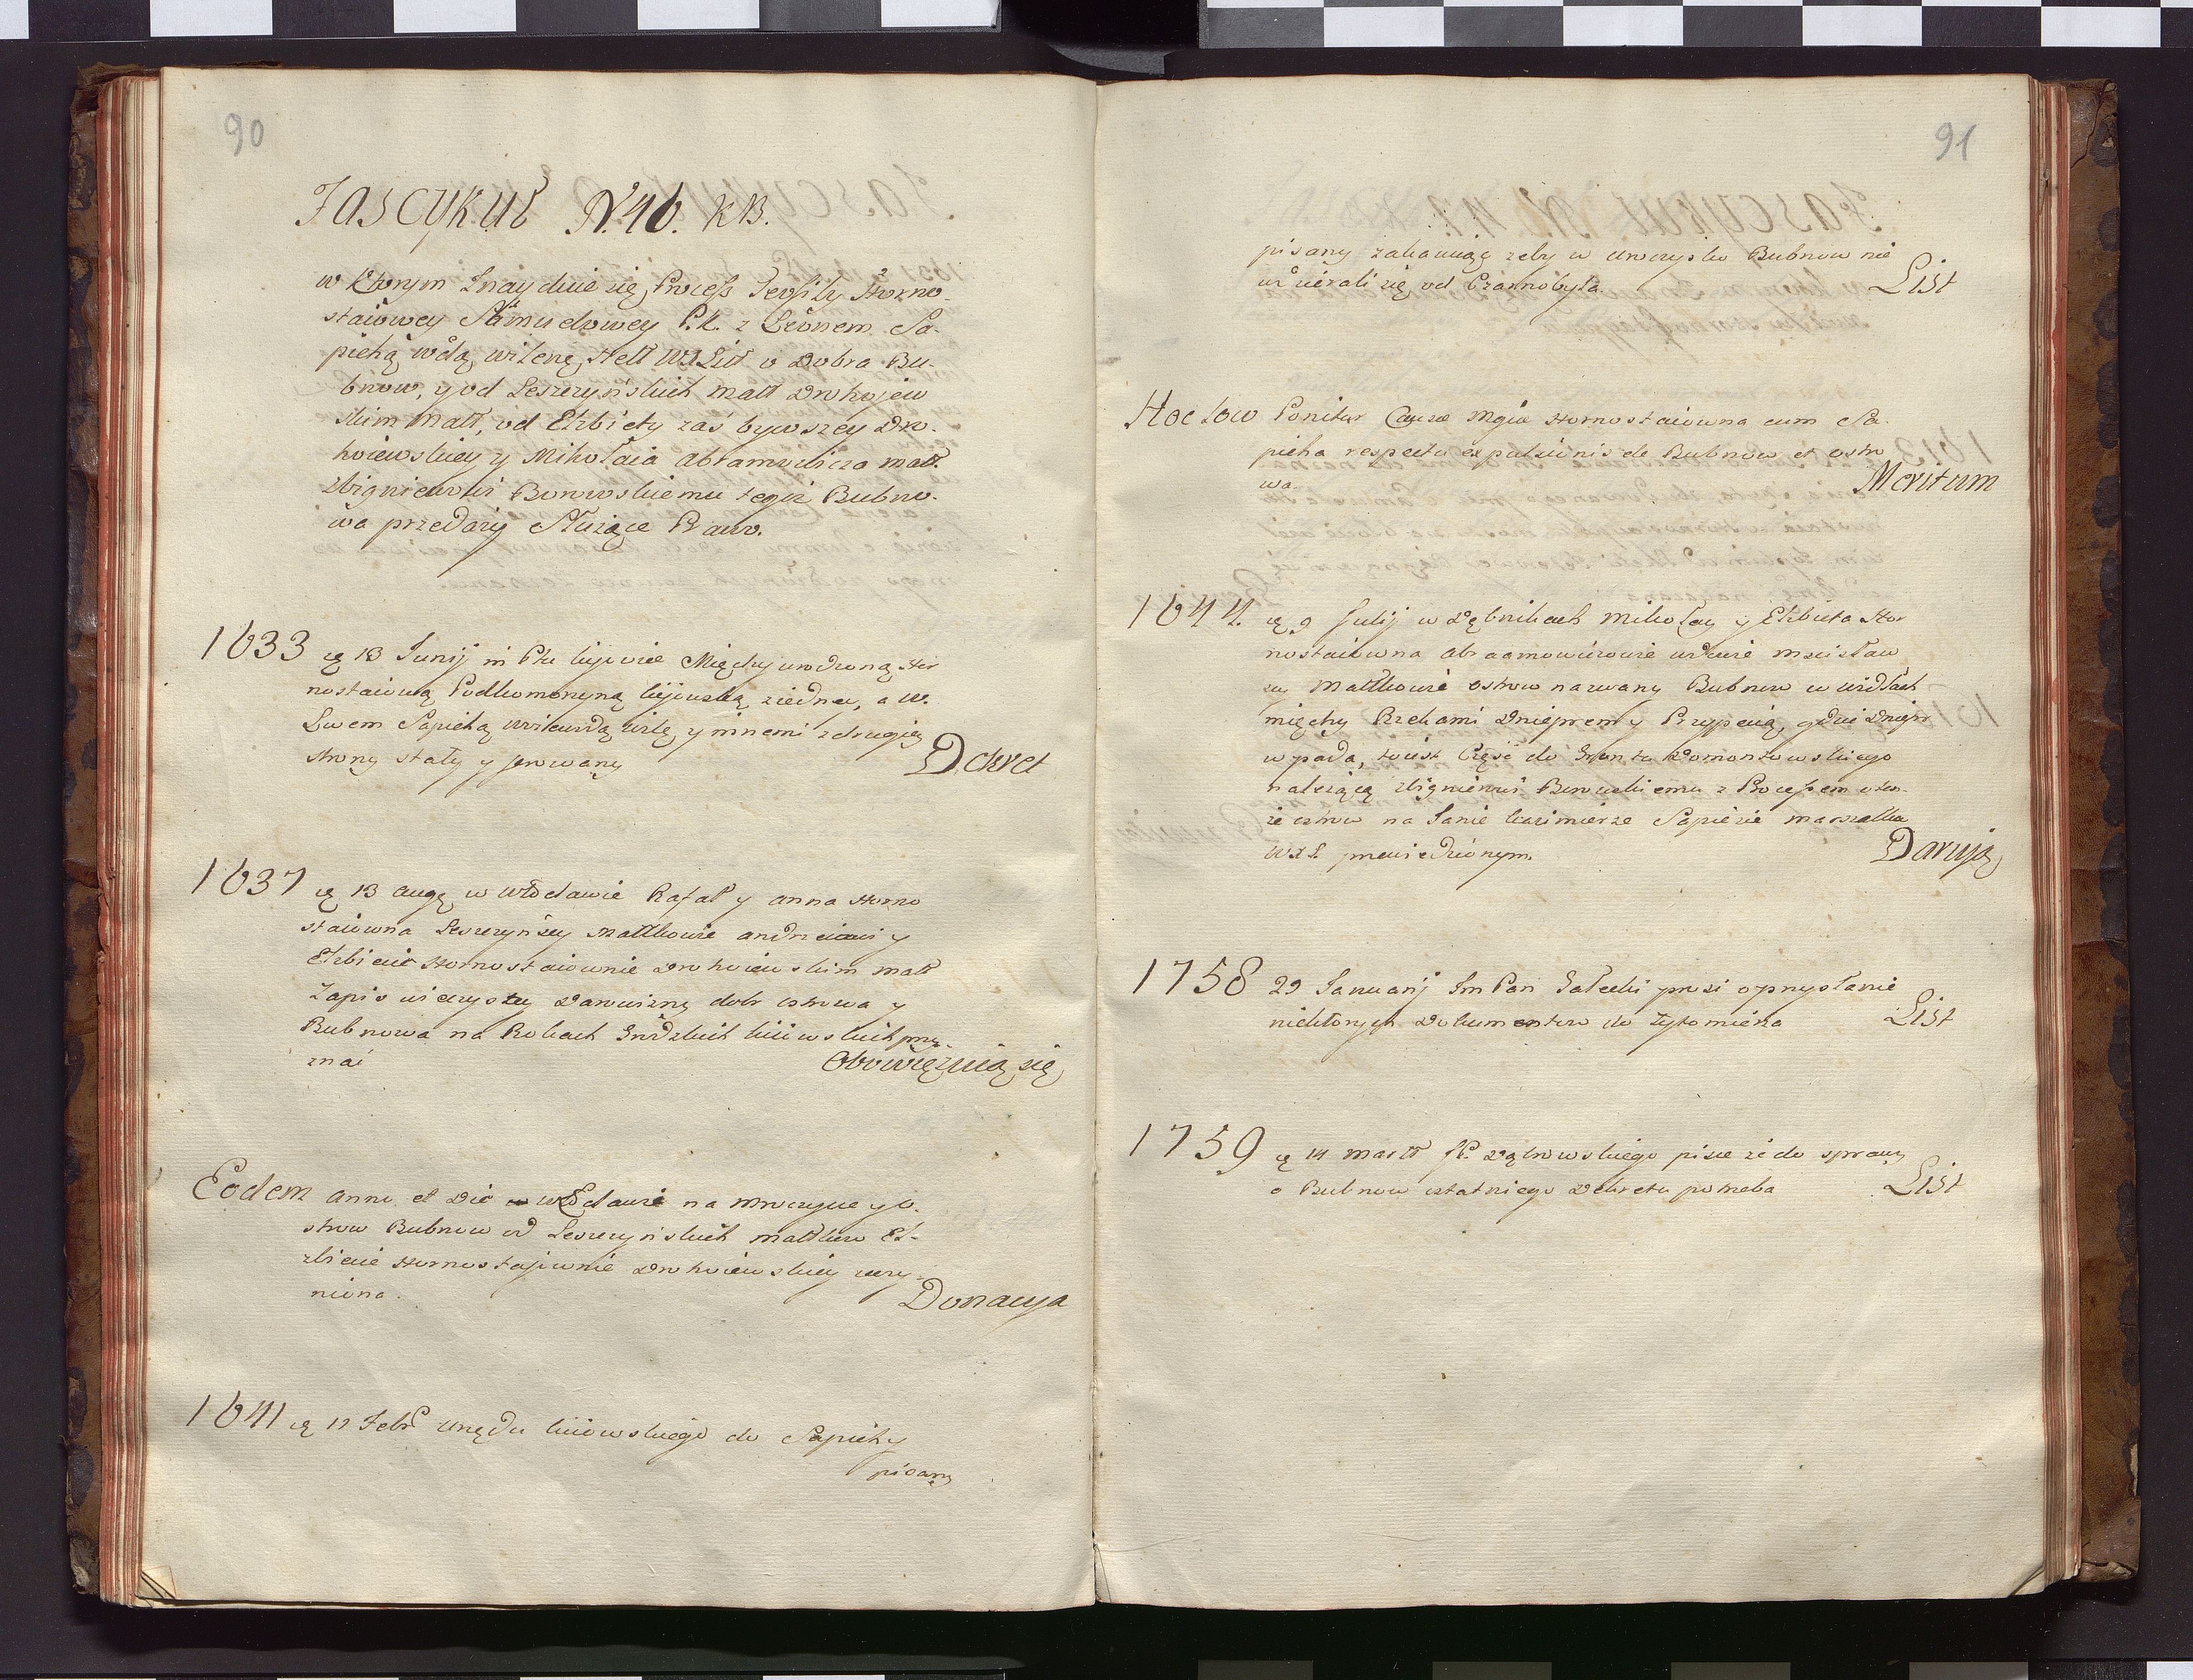 90
Fascykuł N. 46. KB.
w Ktorym Znayduie się Process Teofili Horno-
staiowey Samuelowey P. K. z Leonem Sa-
piehą wdą wileńę Hett WXLitt o Dobra Bu-
bnow, y od Leszczyńskich Matt Drohojew
skim Matt, od Elżbiety zaś bywszey Dro-
hoiewskiey y Mikołaia Abramowicza matt.
Zbigniewowi Borowskiemu tegoż Bubno-
wa przedaży Służące Prawo.
1633 ię 13 Junij in Ptu kijowie Między urodzoną Hor
nostaiową Podkomorzyną kijowską ziedney, a W.
Lwem Sapiehą wdą y innemi zdrugiey
strony stały y ferowany
Dekret
1637 ię 13 Augę w Włodawie Rafał y Anna Horno
staiowna Leszczyńscy Mattkowie Andrzeiowi y
Elżbiecie Hornostaiownie Drohoiewskim matt
Zapis wieczysty Darowizny dobr ostrowa y
Bubnowa na Rokach Grodzkich kiiowskich przy-
znać
Obowięzuią się
Eodem Anno et Die w Włodawie na wieczyne y O-
strow Bubnow od Leszczyńskich mattkow El-
żbiecie Hornostajownie Drohoiewskiey uczy-
niona.
Donacyja
1641 ię 12 Febr Urzędu kiiowskiego do Sapiehy
pisany
91
pisany zakazuiąc zeby w Uroczysko Bubnow nie
wdzierali się od Czarnobyla.
List
Hoc Low Ponitur Causa Mgca Hornostaiowna cum Sa-
pieha respectu expulsionis de Bubnow et ostro
wa
Meritum
1644. ię 9 Julij w Dębnikach Mikołay y Elżbieta Hor
nostaiowna Abraamowiczowie wdwie mscisław
scy Mattkowie ostrow nazwany Bubnow w widłach
między Rzekami Dnieprem y Prypecią, gdzie Dniepr
wpada, toiest Część do Gruntu Domontowskiego
należącą Zbigniewowi Borowskiemu z Processem o ten-
że ostrow na Janie Kazimierze Sapiezie marszałku
W. X. L. przewiedzionym.
Darują
1758 29 Januarij Im Pan Gałecki prosi o przysłanie
niektorych Dokumentow do Zytomierza
List
1759 ię 14 Martt JP. Dąbrowskiego pisze że do sprawy
o Bubnow ostatniego Dekretu potrzeba
List